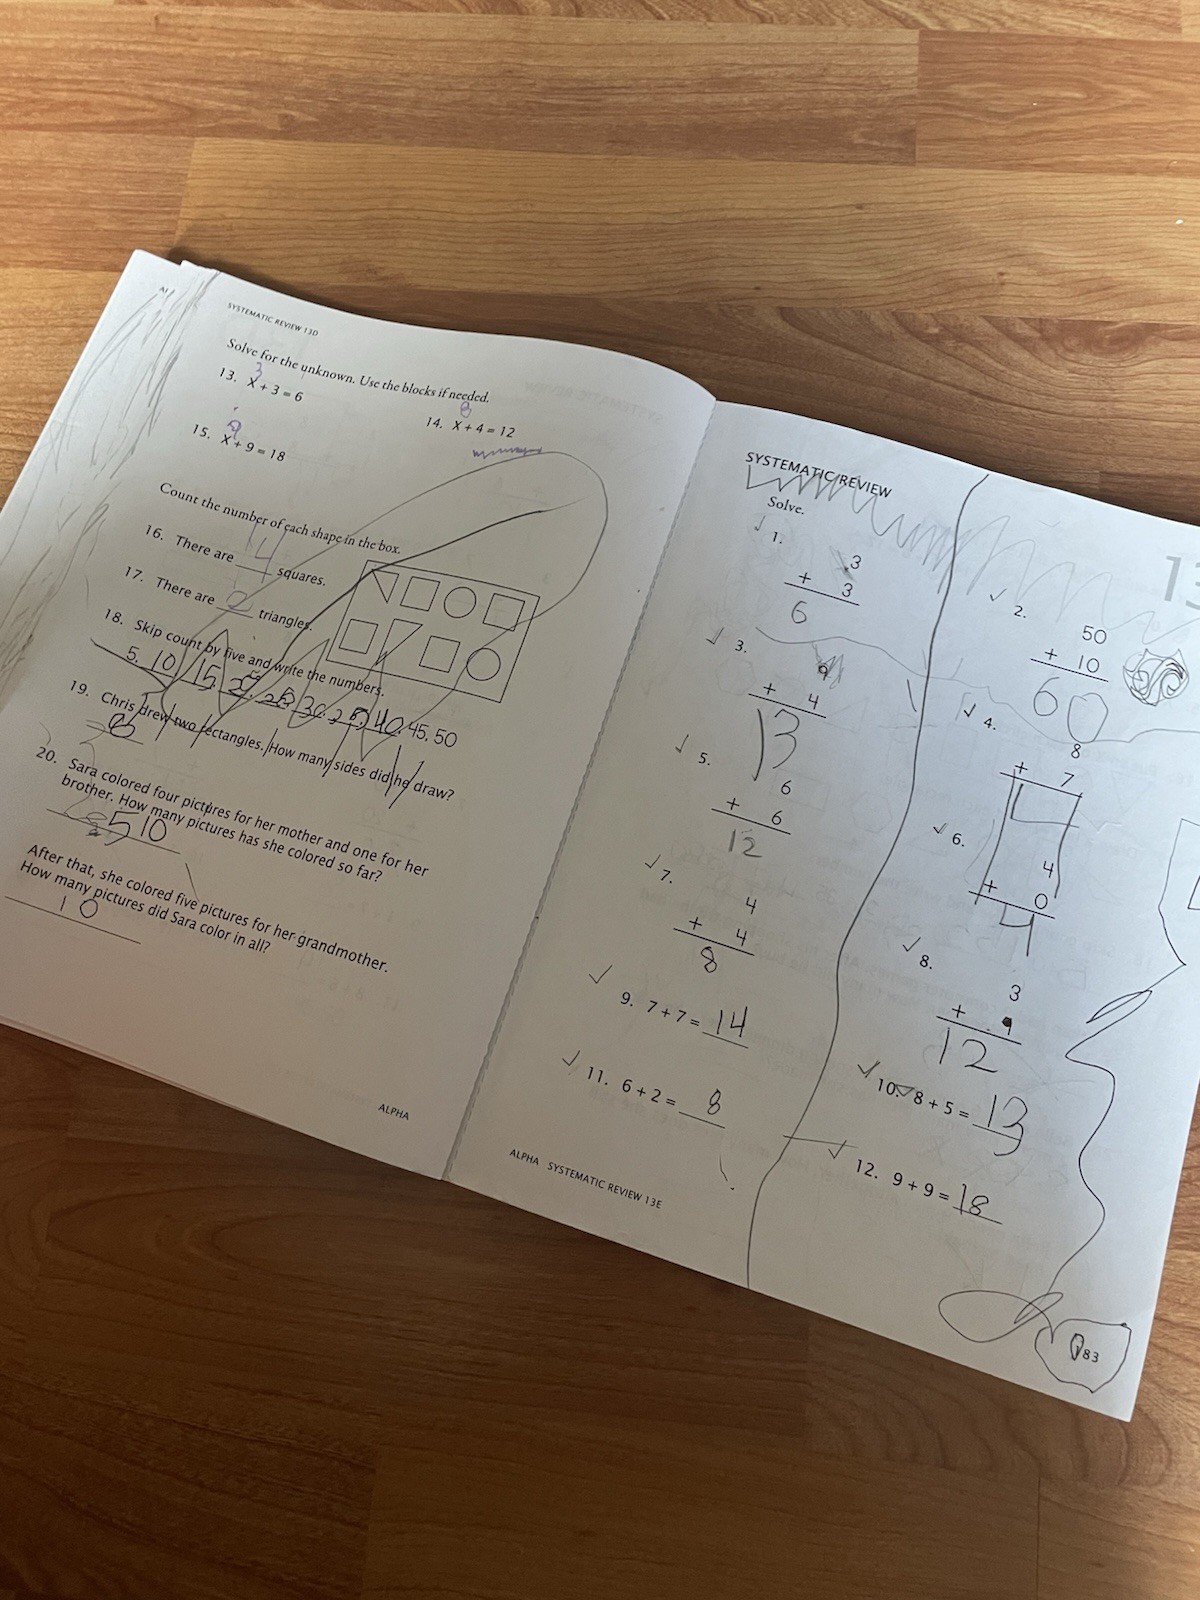 SYSTEMATIC REVIEW 13D
Solve for the unknown. Use the blocks if needed.
3
13. X + 3 = 6
8
14. X + 4 = 12
9
15. X + 9 = 18
Count the number of each shape in the box.
16. There are 4 squares.
17. There are 2 triangles.
18. Skip count by five and write the numbers.
5, 10, 15, 40, 45, 50
19. Chris drew two rectangles. How many sides did he draw?
8
20. Sara colored four pictures for her mother and one for her
brother. How many pictures has she colored so far?
510
After that, she colored five pictures for her grandmother.
How many pictures did Sara color in all?
10
ALPHA
SYSTEMATIC REVIEW
13
Solve.
1.
3
+ 3
6
2.
50
+ 10
60
3.
9
+ 4
13
4.
8
+ 7
5.
6
+ 6
12
6.
4
+ 0
4
7.
4
+ 4
8
8.
3
+ 9
12
9. 7 + 7 = 14
10. 8 + 5 = 13
11. 6 + 2 = 8
12. 9 + 9 = 18
ALPHA SYSTEMATIC REVIEW 13E
183